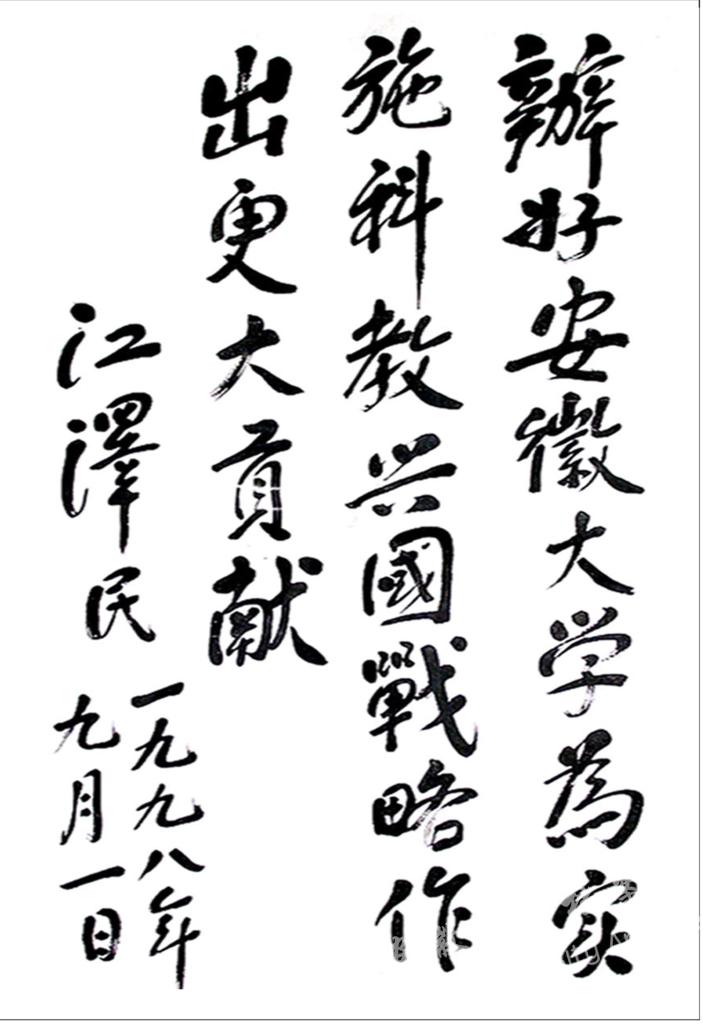 辦好安徽大学為实
施科教兴國戰略作
出更大貢献
江澤民
一九九八年
九月一日